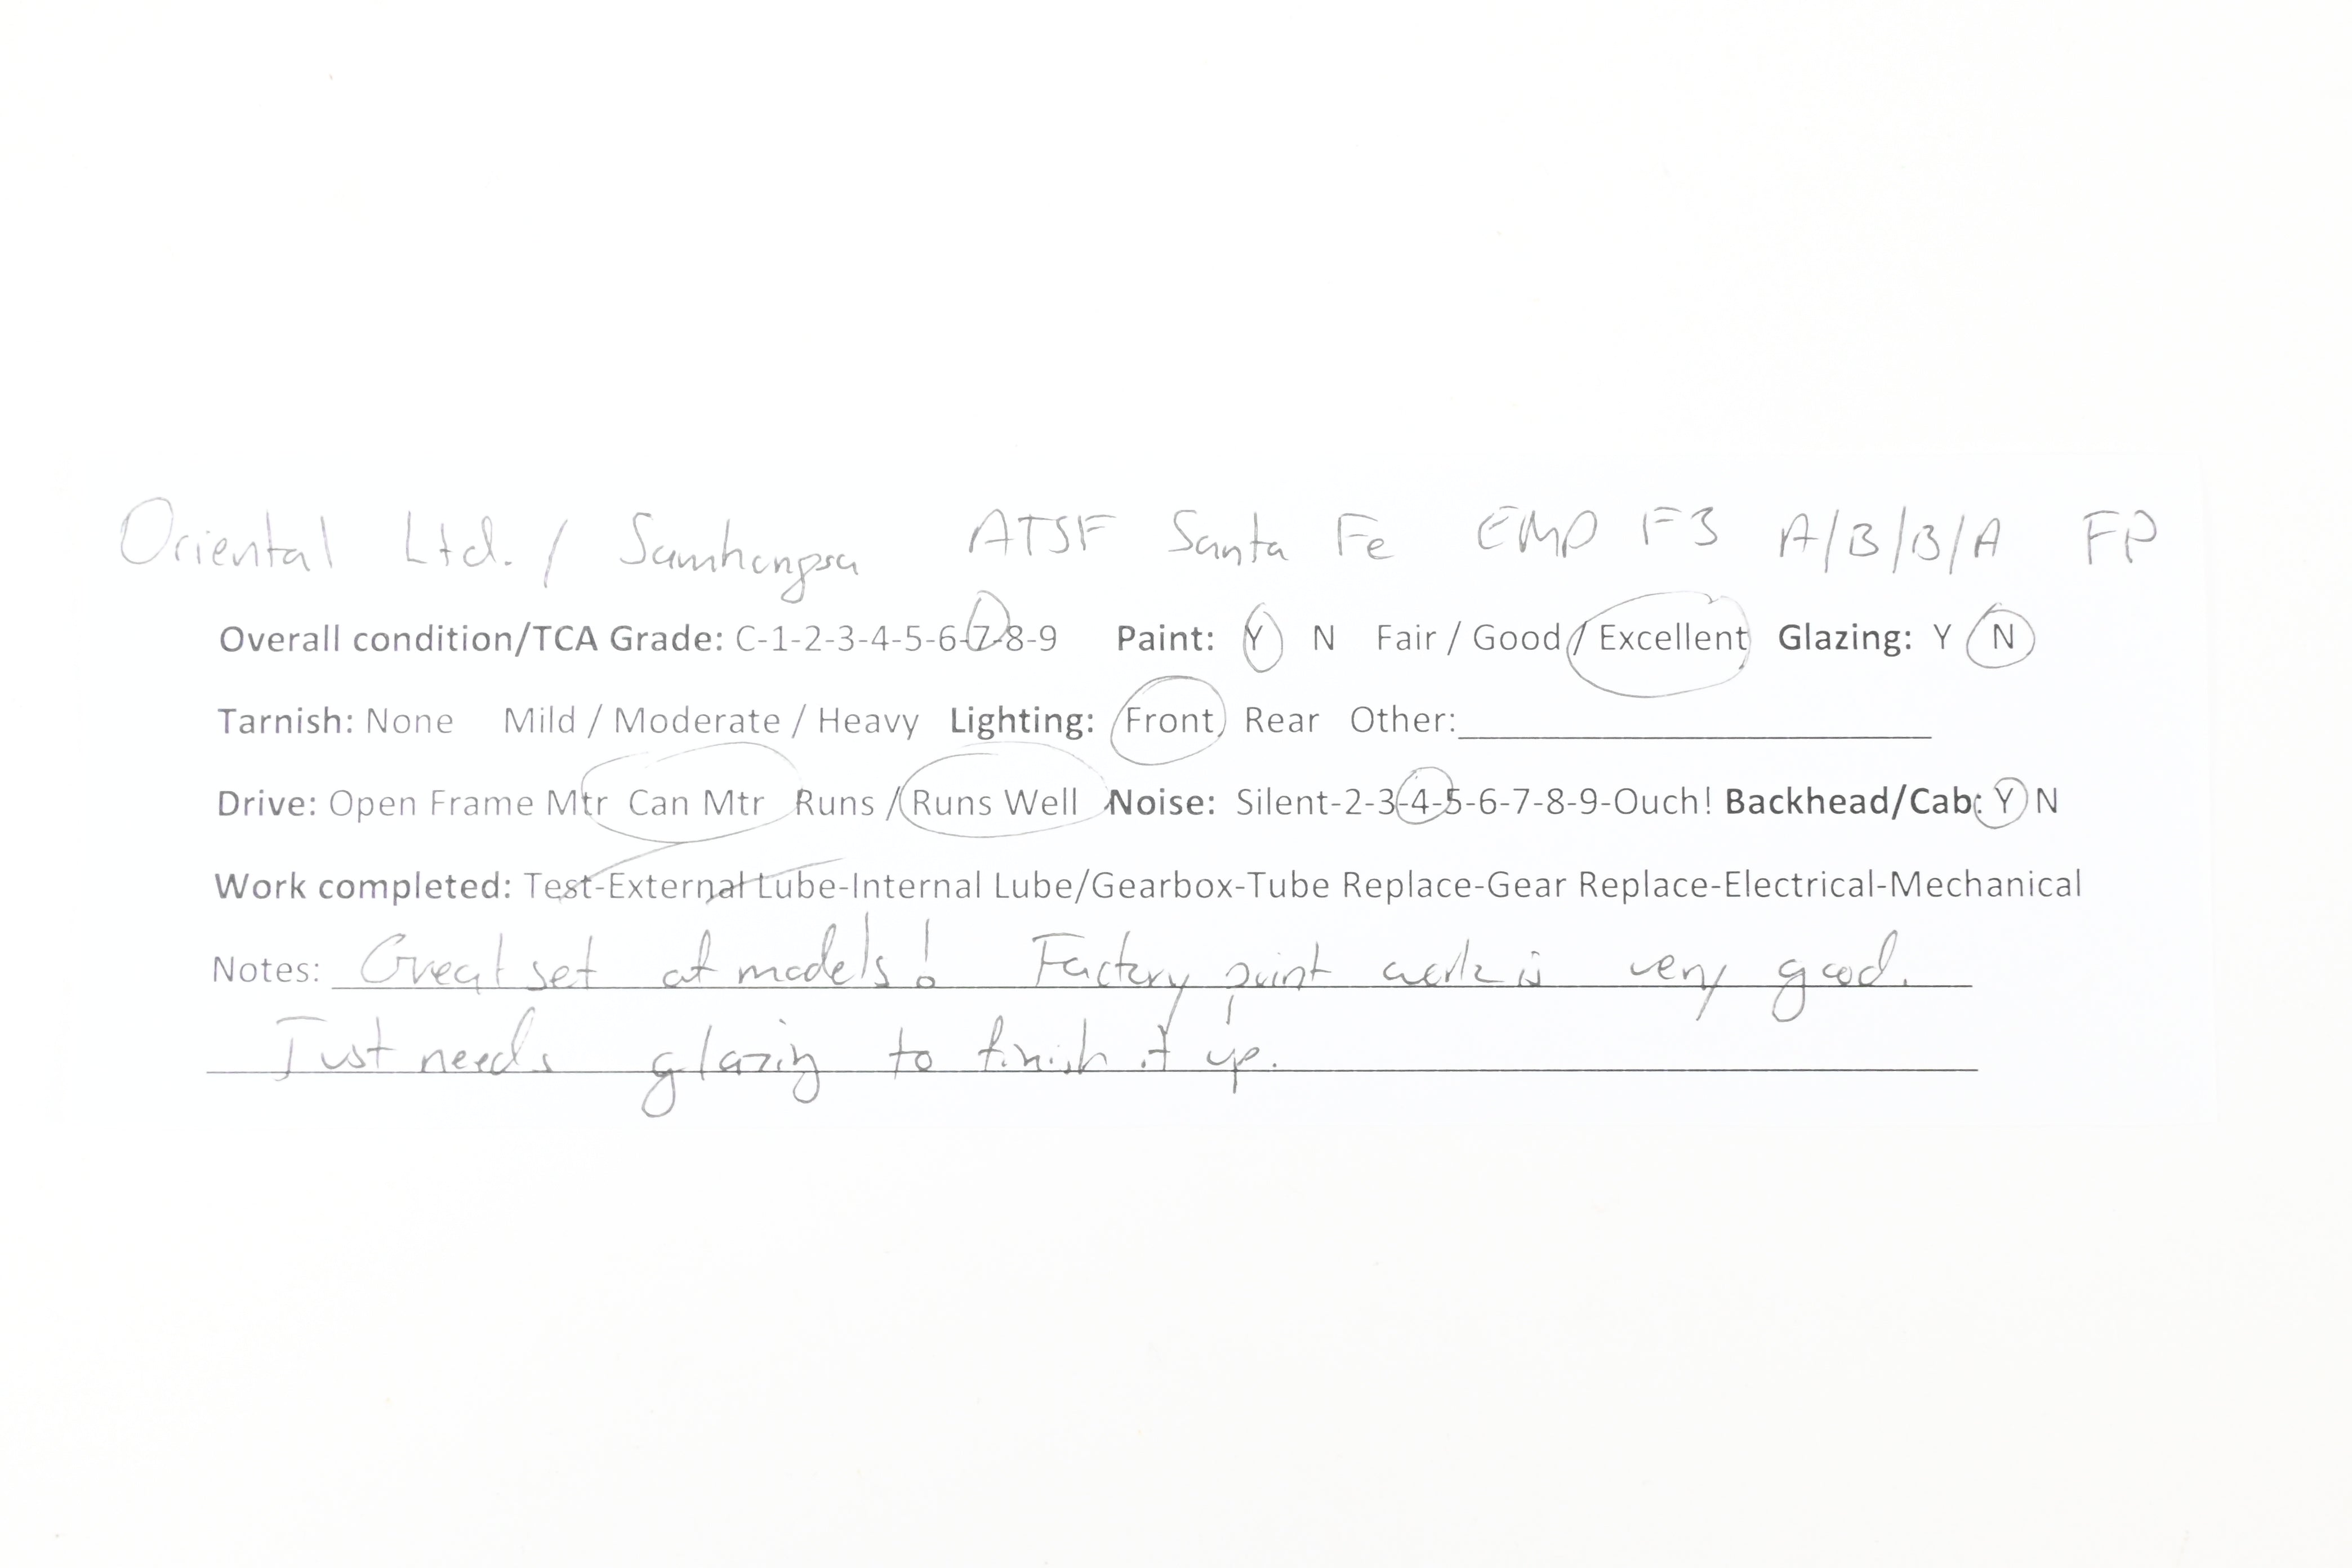 Oriental Ltd. / Samhongsa ATSF Santa Fe EMD F3 A/B/B/A FP
Overall condition/TCA Grade: C-1-2-3-4-5-6-7-8-9 Paint: Y N Fair / Good / Excellent Glazing: Y N
Tarnish: None Mild / Moderate / Heavy Lighting: Front Rear Other:
Drive: Open Frame Mtr Can Mtr Runs / Runs Well Noise: Silent-2-3-4-5-6-7-8-9-Ouch! Backhead/Cab: Y N
Work completed: Test-External Lube-Internal Lube/Gearbox-Tube Replace-Gear Replace-Electrical-Mechanical
Notes: Great set of models! Factory paint work is very good.
Just needs glazing to finish it up.